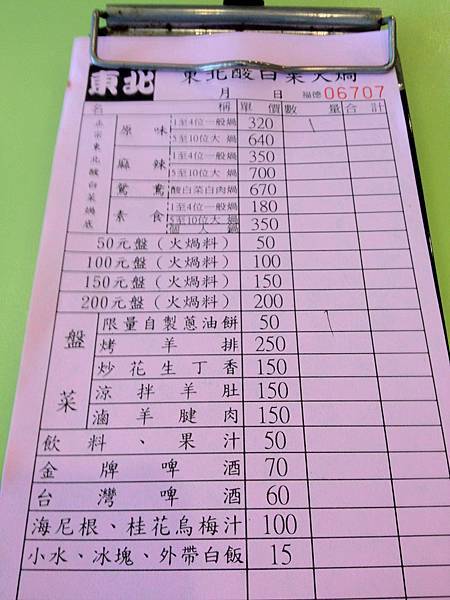 東北 東北酸白菜火鍋
月 日 福德 06707
名 稱 單價 數量 合計
正宗東北酸白菜鍋底
原味 1至4位一般鍋 320
5至10位大鍋 640
麻辣 1至4位一般鍋 350
5至10位大鍋 700
鴛鴦 酸白菜白肉鍋 670
素食 1至4位一般鍋 180
5至10位大鍋 350
個人鍋
50元盤(火鍋料) 50
100元盤(火鍋料) 100
150元盤(火鍋料) 150
200元盤(火鍋料) 200
盤菜
限量自製蔥油餅 50
烤羊排 250
炒花生丁香 150
涼拌羊肚 150
滷羊腱肉 150
飲料、果汁 50
金牌啤酒 70
台灣啤酒 60
海尼根、桂花烏梅汁 100
小水、冰塊、外帶白飯 15